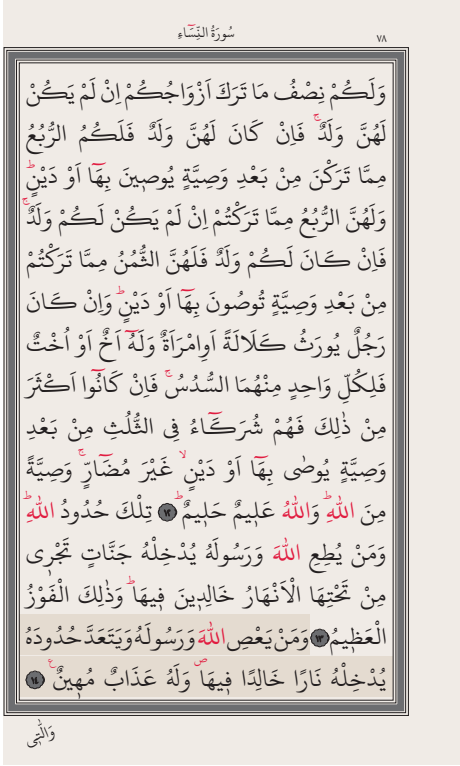 سُورَةُ النِّسَٓاءِ
٧٨
وَلَكُمْ نِصْفُ مَا تَرَكَ اَزْوَاجُكُمْ اِنْ لَمْ يَكُنْ
لَهُنَّ وَلَدٌۚ فَاِنْ كَانَ لَهُنَّ وَلَدٌ فَلَكُمُ الرُّبُعُ
مِمَّا تَرَكْنَ مِنْ بَعْدِ وَصِيَّةٍ يُوصٖينَ بِهَٓا اَوْ دَيْنٍؕ
وَلَهُنَّ الرُّبُعُ مِمَّا تَرَكْتُمْ اِنْ لَمْ يَكُنْ لَكُمْ وَلَدٌۚ
فَاِنْ كَانَ لَكُمْ وَلَدٌ فَلَهُنَّ الثُّمُنُ مِمَّا تَرَكْتُمْ
مِنْ بَعْدِ وَصِيَّةٍ تُوصُونَ بِهَٓا اَوْ دَيْنٍؕ وَاِنْ كَانَ
رَجُلٌ يُورَثُ كَلَالَةً اَوِامْرَاَةٌ وَلَهُٓ اَخٌ اَوْ اُخْتٌ
فَلِكُلِّ وَاحِدٍ مِنْهُمَا السُّدُسُۚ فَاِنْ كَانُٓوا اَكْثَرَ
مِنْ ذٰلِكَ فَهُمْ شُرَكَٓاءُ فِي الثُّلُثِ مِنْ بَعْدِ
وَصِيَّةٍ يُوصٰى بِهَٓا اَوْ دَيْنٍۙ غَيْرَ مُضَٓارٍّۚ وَصِيَّةً
مِنَ اللّٰهِؕ وَاللّٰهُ عَلٖيمٌ حَلٖيمٌؕ ١٢ تِلْكَ حُدُودُ اللّٰهِؕ
وَمَنْ يُطِعِ اللّٰهَ وَرَسُولَهُ يُدْخِلْهُ جَنَّاتٍ تَجْرٖى
مِنْ تَحْتِهَا الْاَنْهَارُ خَالِدٖينَ فٖيهَاؕ وَذٰلِكَ الْفَوْزُ
الْعَظٖيمُ ١٣ وَمَنْ يَعْصِ اللّٰهَ وَرَسُولَهُ وَيَتَعَدَّ حُدُودَهُ
يُدْخِلْهُ نَارًا خَالِدًا فٖيهَاࣕ وَلَهُ عَذَابٌ مُهٖينٌࣖ ١٤
وَالّٰتٖى